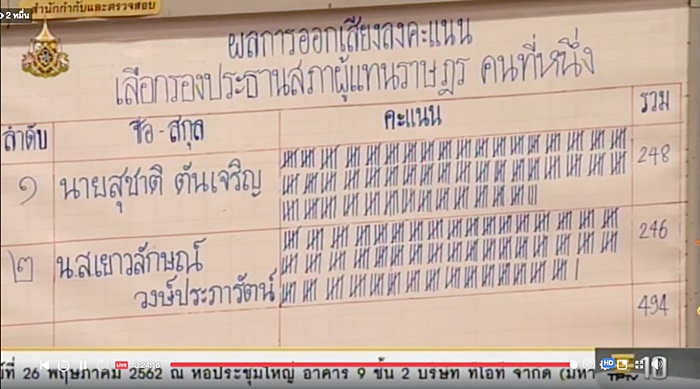 สำนักกำกับและตรวจสอบ
2 หมื่น
ผลการออกเสียงลงคะแนน
เลือกรองประธานสภาผู้แทนราษฎร คนที่หนึ่ง
ลำดับ ชื่อ - สกุล คะแนน รวม
๑ นายสุชาติ ตันเจริญ 248
๒ น.ส.เยาวลักษณ์ 246
วงษ์ประภารัตน์
494
LIVE 3:24:16 HD
ที่ 26 พฤษภาคม 2562 ณ หอประชุมใหญ่ อาคาร 9 ชั้น 2 บริษัท ทีโอที จำกัด (มหา
10